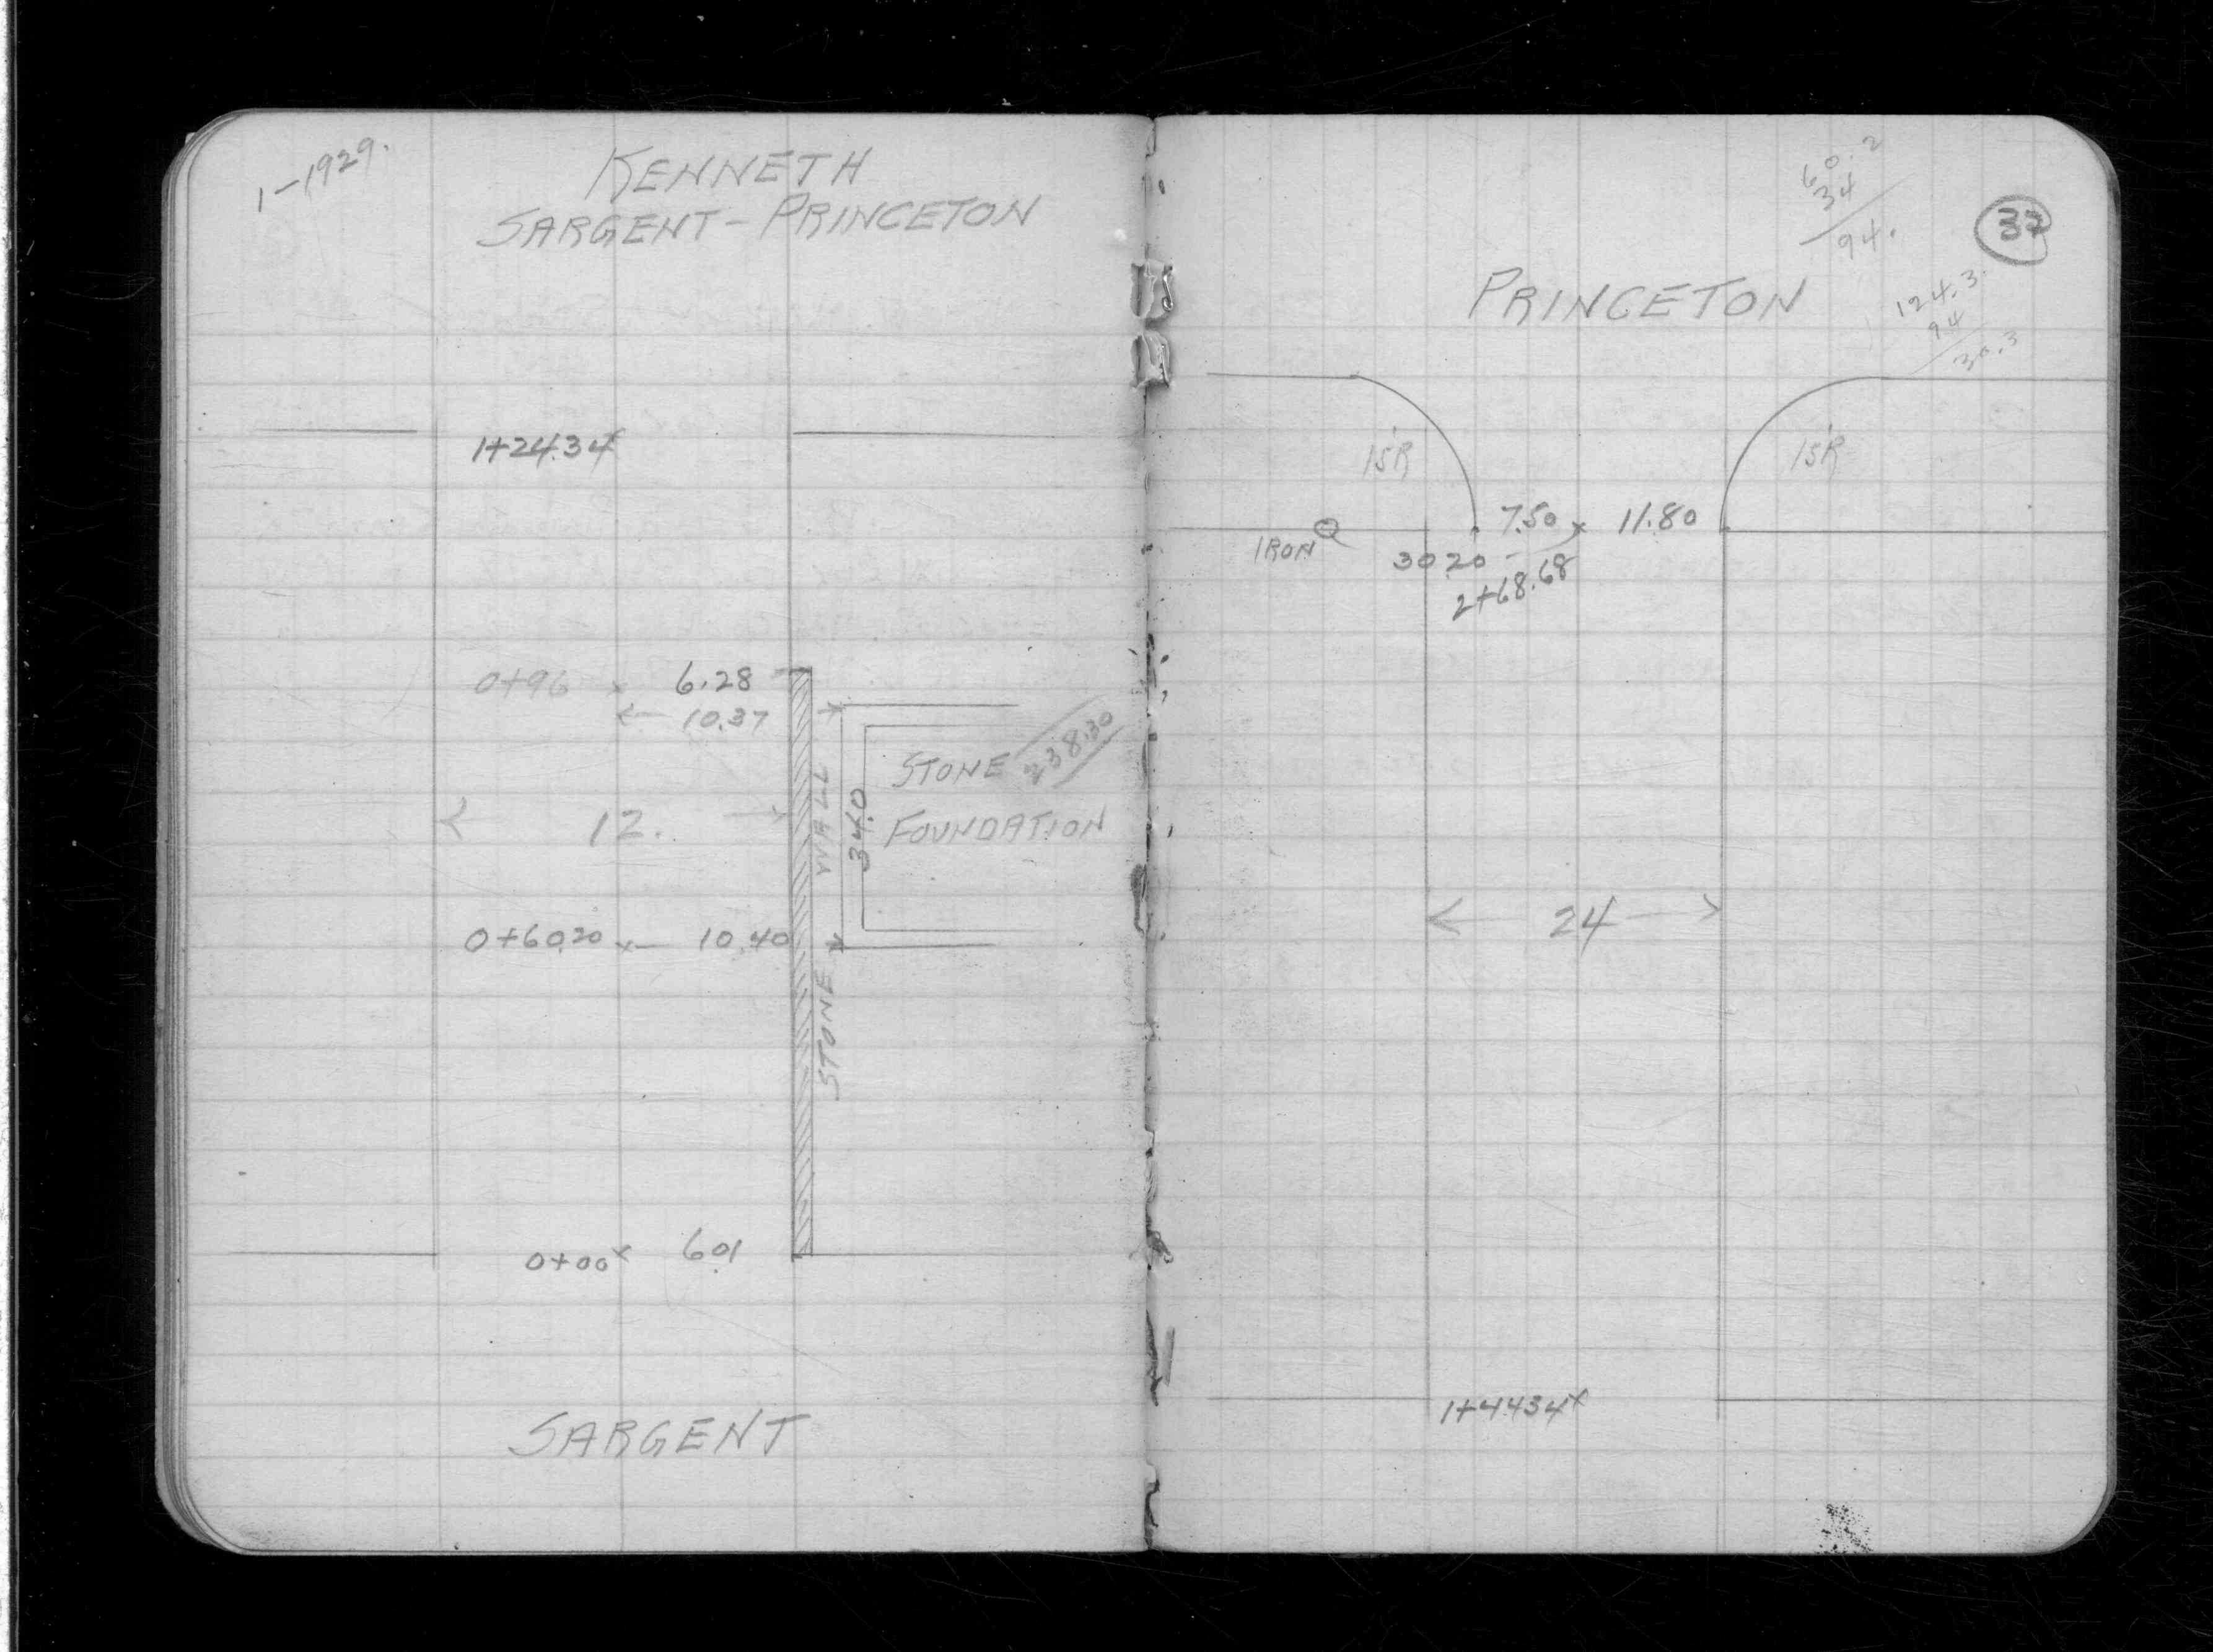 1-1929.
KENNETH
SARGENT-PRINCETON
1+24.34
0+96 6.28
10.37
STONE 238.30
FOUNDATION
12.
34.0
STONE WALL
0+60.20 10.40
0+00 6.01
SARGENT
60.2
34
94.
124.3
94
30.3
PRINCETON
15'R
15'R
7.50 11.80
IRON
30.20
2+68.68
24
1+44.34